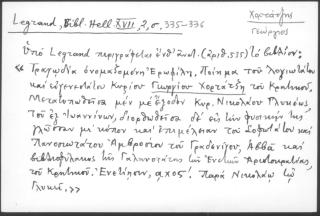 Legrand, Bibl. Hell. XVII, 2, σ. 335-336
Χορτάτζης
Γεώργιος
Ὑπὸ Legrand περιγράφεται (ἀριθ. 535) τὸ βιβλίον:
« Τραγωδία ὀνομαζομένη Ἐρωφίλη, Ποίημα τοῦ λογιωτάτου
καὶ εὐγενεστάτου Κυρίου Γεωργίου Χορτάτζη τοῦ Κρητικοῦ,
Μετατυπωθεῖσα μὲν μὲ ἔξοδον Κυρ. Νικολάου Γλυκέως,
τοῦ ἐξ Ἰωαννίνων, διορθωθεῖσα δ' εἰς τὴν φυσικήν της
γλῶσσαν μὲ κόπον καὶ ἐπιμέλειαν τοῦ Σοφωτάτου καὶ
Πανοσιωτάτου Ἀμβροσίου τοῦ Γραδενίγου, Ἀββᾶ καὶ
βιβλιοφύλακος τῆς Γαληνοτάτης τῶν Ἐνετῶν Ἀριστοκρατίας,
τοῦ Κρητικοῦ. Ἐνετίησιν, αχος΄. Παρὰ Νικολάῳ τῷ
Γλυκεῖ, »